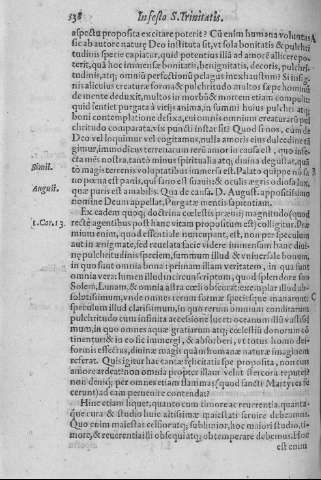 538 In festo S. Trinitatis.
aspectu proposita excitare poterit? Cùm enim humana voluntas A
sic ab autore naturæ Deo instituta sit, vt sola bonitatis & pulchri
tudinis specie capiatur, quid potentius illú ad amoré allicere po-
terit, quā hoc immensæ bonitatis, benignitatis, decoris, pulchri-
tudinis, atq; omniũ perfectionũ pelagus inexhaustum? Si insig-
nis alicuius creaturæ forma & pulchritudo multos sæpe hominũ
de mente deduxit, multos in morbũ & mortem etiam compulit:
quid sentiet purgata à vitijs anima, in summi huius pulchri atq;
boni contemplatione defixa, cui omnis omnium creaturarũ pul
chritudo comparata, vix puncti instar sit? Quod si nos, cùm de
Deo vel loquimur vel cogitamus, nulla amoris eius dulcedine
gimur, immodicus terrenarum rerũ amor in causa est, quo infe-
cta mēs nostra, tantò minus spiritualia atq; diuina degustat, quā
Simil. tò magis terrenis voluptatibus immersa est. Palato quippe nō sa B
no pœna est panis, qui sano est suauis: & oculis ægris odiosa lux,
August. quæ puris est amabilis. Qua de causa D. Augus. appositissimo
nomine Deum appellat, Purgatæ mentis sapientiam.
Ex eadem quoq; doctrina cœlestis præmij magnitudo (quod
1. Cor. 13. rectè agentibus post hanc vitam propositum est) colligitur. Præ
mium enim, quod essentiale nuncupant, est, non per speculum
aut in ænigmate, sed reuelata facie videre immensam hanc diui-
næ pulchritudinis speciem, summum illud & vniuersale bonum,
in quo sunt omnia bona: primam illam veritatem, in qua sunt
omnia vera: lumen illud incircunscriptum, quod splendore suo
Solem, Lunam, & omnia astra cœli obscurat: exemplar illud ab-
solutissimum, vnde omnes rerum formæ specificæ manarunt: C
speculum illud clarissimum, in quo rerum omnium conditarum
pulchritudo cum infinita accessione lucet: oceanum illũ vastissi
mum, in quo omnes aquæ gratiarum atq; cœlestiũ donorum cō
tinentur: & in eo sic immergi, & absorberi, vt totus homo dei-
formis effectus, diuinæ magis quàm humanæ naturæ imaginem
referat. Quis igitur hac tantæ felicitatis spe proposita, non cum
amore ardeat? non omnia propter illam velut stercora reputet?
non denique per omnes etiam flammas (quod sancti Martyres fe
cerunt) ad eam peruenire contendat?
Hinc etiam liquet, quanto cum timore ac reuerentia, quanta-
què cura & studio huic altissimæ maiestati seruire debeamus.
Quo enim maiestas celsior atq; sublimior, hoc maiori studio, ti-
more, & reuerentia illi obsequi atq; obtemperare debemus. Hoc
est enim